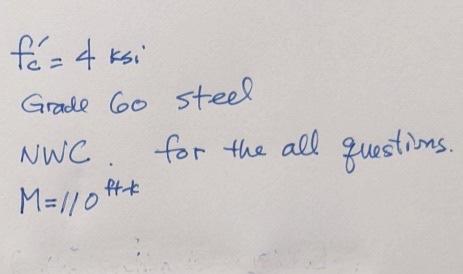 fc' = 4 ksi
Grade 60 steel
NWC. for the all questions.
M=110 ft-k